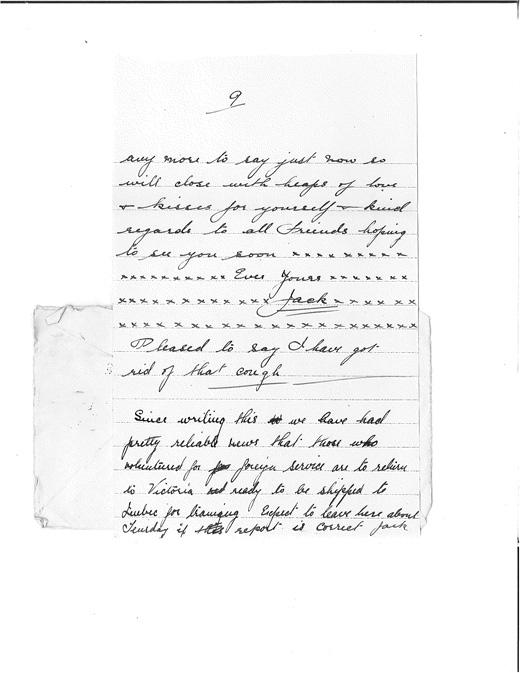 9
any more to say just now so
will close with heaps of love
+ kisses for yourself + kind
regards to all Friends hoping
to see you soon x x x x x x x x x
x x x x x x x x x x Ever Yours x x x x x x x
x x x x x x x x x x x x x Jack x x x x x x
x x x x x x x x x x x x x x x x x x x x x x x x x
Pleased to say I have got
rid of that cough
Since writing this we have had
pretty reliable news that those who
voluntured for foriegn service are to return
to Victoria ready to be shipped to
Quebec for training Expect to leave here about
Teursday if this report is correct Jack